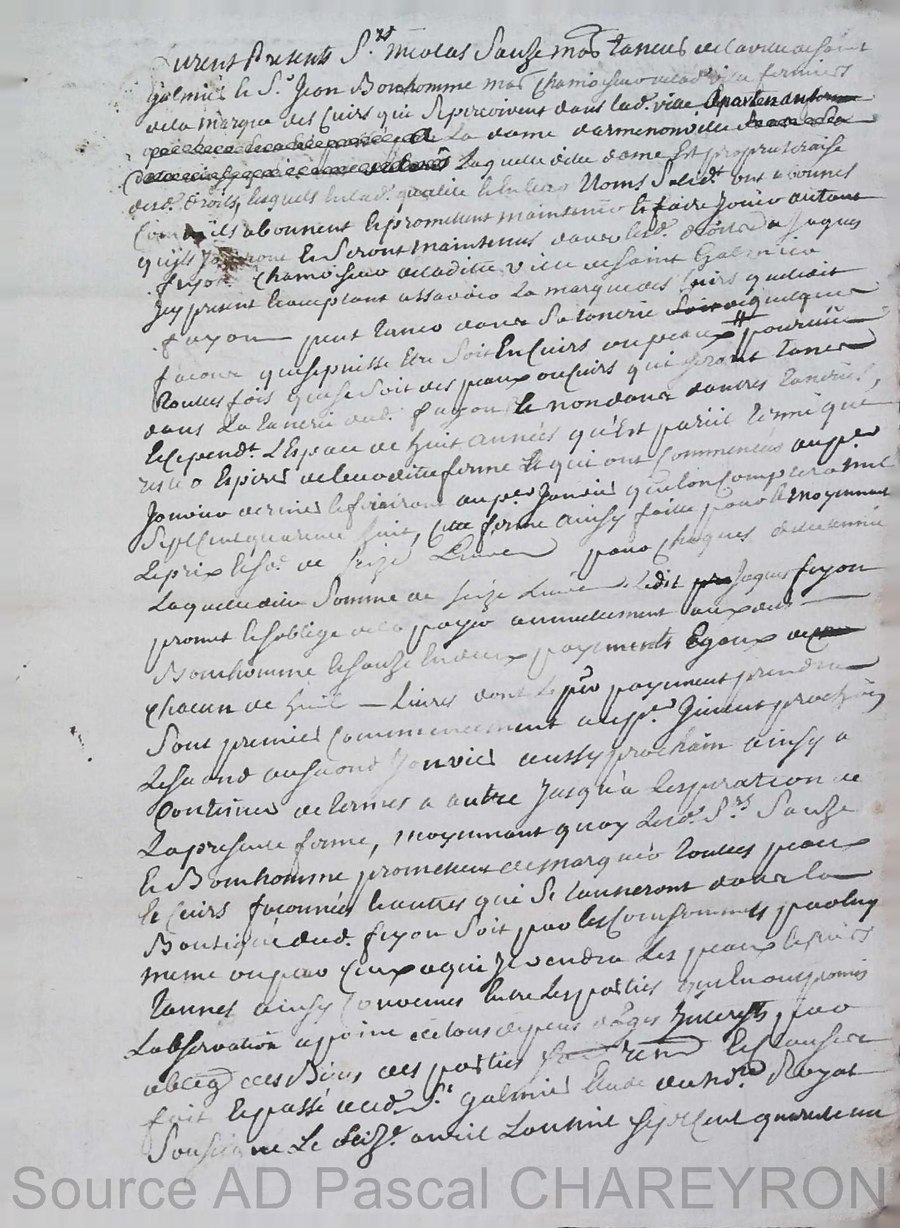 Furent Presents S.rs Nicolas Sauze mos Taneur de la ville de Saint
Galmier le S.r Jean Bonhomme mos Chamoiseur fermiers
de la marque des Cuirs qui Se percoivent dans lad. ville apartenant
a La dame darmenonville
Laquelle dite dame Est proprietraise
desd. droits, lesquels aud. qualité Noms Solid.t ont abonnes
Comme ils abonnent et promettent maintenir et faire Jouir autant
quils Jouiront et Seront maintenus dans lesd. droits a Jaques
fuyon Chamoiseur de ladite ville de Saint Galmier
Icy present acceptant assavoir La marque des Cuirs que ledit
fuyon peut taner dans Sa tanerie quelque
facon que se puisse Etre Soit En Cuirs ou peaux pourvu
toutes fois que se Soit des peaux ou Cuirs qui seront tanes
dans La tanerie dud. fuyon Et non dans dautres taneries,
Et ce pend.t LEspace de huit années qu'Est pareil terme que
reste a Espirer de leur ditte ferme Et qui ont Commencées au p.er
Janvier dernier et finiront au p.er Janvier que lon Comptera mil
Sept Cent quarante huit, Cette ferme ainsy faitte pour et moyennant
Le prix et So. de Seize Livres pour chaques année
Laquelle dite Somme de Seize Livres Ledit Jaques fuyon
promet et soblige de la payer annuellement auxdits
Bonhomme et Sauze En deux payements Egaux de
chacun de huit — Livres dont Le p.er payement prendra
Sont premier Commencement au p.er Juillet prochain
Le Second au Second Janvier aussy prochain ainsy a
Continuer de termes a autre Jusqua Lespiration de
La presente ferme, moyennant quoy Lesd. S.rs Sauze
Et Bonhomme promettent de marquer toutes peaux
Et Cuirs faconnés Et autres qui Se tanneront dans la
Boutique dud. fuyon Soit par les Consommer par luy
meme ou par Ceux a qui Il vendra Les peaux et Cuirs
Tannes ainsy Convenus Entre Les parties qui En ont promis
Lobservation a peine de tous depens domages Interests, par
oblig. des Biens des parties renon. et clauses
fait Et passé aud. S.t Galmier Etude du No.re Royal
Soussigné Le Seiz.e avril Lan mil sept Cent quarante un
Source AD Pascal CHAREYRON